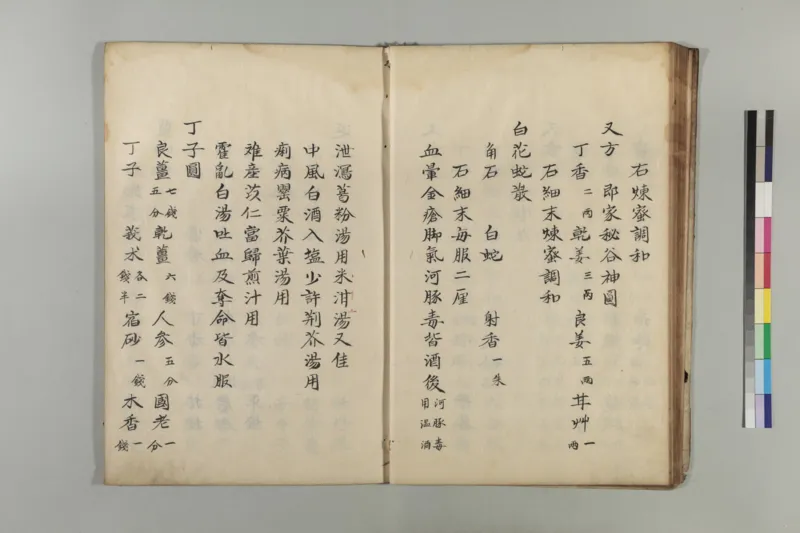 右煉蜜調和
又方　即家秘谷神圓
丁香二両乾姜三両良姜五両甘艸一両
右細末煉蜜調和
白花蛇散
角石　白蛇　射香一朱
右細末毎服二厘
血暈金瘡脚氣河豚毒皆酒後河豚毒用温酒
泄瀉葛粉湯用米泔湯又佳
中風白酒入塩少許荊芥湯用
痢病罌粟芥葉湯用
难産茨仁當歸煎汁用
霍亂白湯吐血及奪命皆水服
丁子圓
良薑七錢五分乾薑六錢人参五分國老一分
丁子　莪朮各二錢半宿砂一錢木香一錢